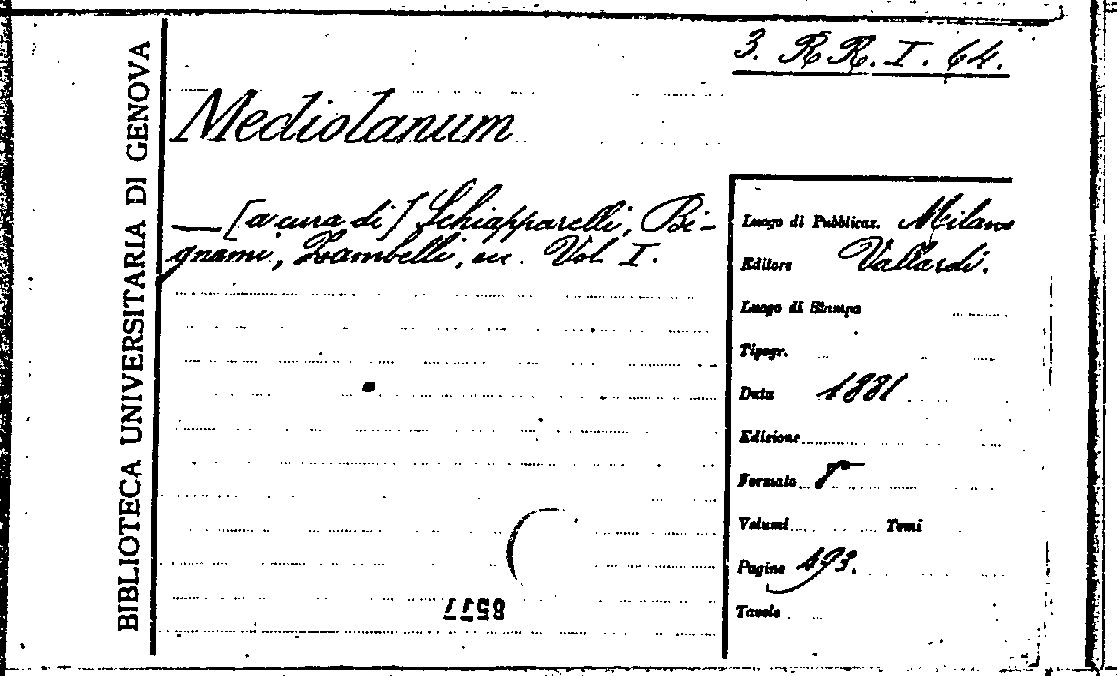 BIBLIOTECA UNIVERSITARIA DI GENOVA
3. R R. I. 64.
Mediolanum
— [a cura di] Schiapparelli, Bi-
gnami, Zambelli, ecc. Vol. I.
Luogo di Pubblicaz. Milano
Editore Vallardi.
Luogo di Stampa
Tipogr.
Data 1881
Edizione
Formato 8°
Volumi Tomi
Pagine 493.
Tavole
8577